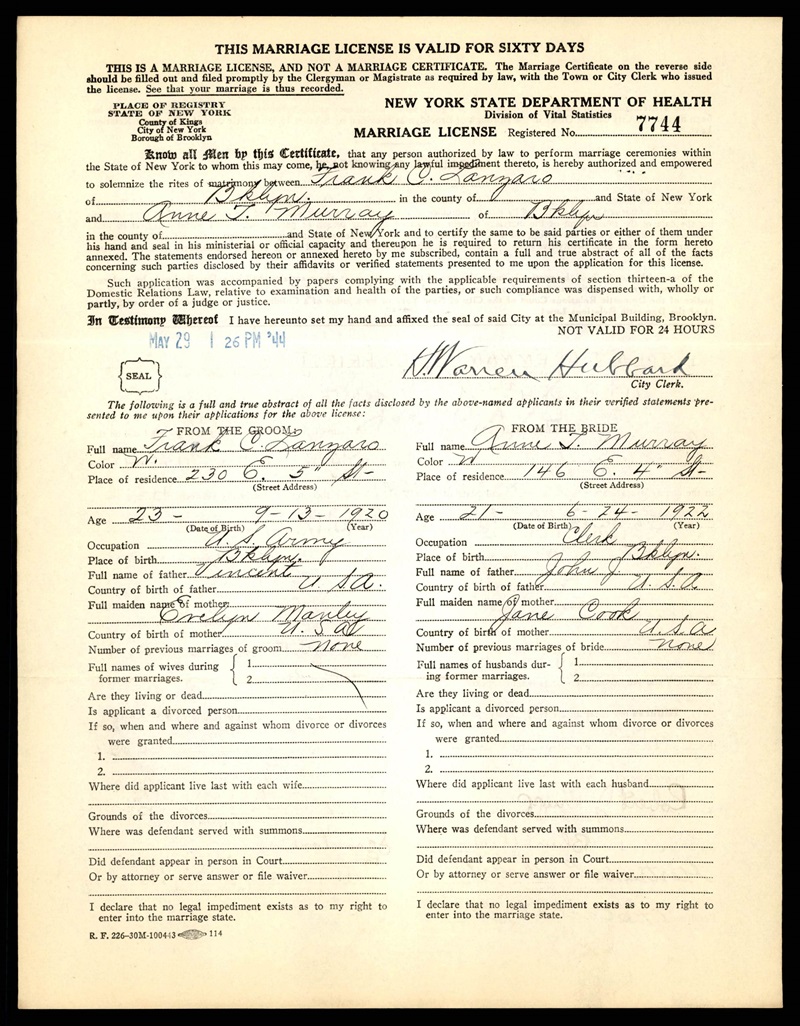 THIS MARRIAGE LICENSE IS VALID FOR SIXTY DAYS
THIS IS A MARRIAGE LICENSE, AND NOT A MARRIAGE CERTIFICATE. The Marriage Certificate on the reverse side
should be filled out and filed promptly by the Clergyman or Magistrate as required by law, with the Town or City Clerk who issued
the license. See that your marriage is thus recorded.
PLACE OF REGISTRY
STATE OF NEW YORK
County of Kings
City of New York
Borough of Brooklyn
NEW YORK STATE DEPARTMENT OF HEALTH
Division of Vital Statistics
MARRIAGE LICENSE Registered No. 7744
Know all Men by this Certificate, that any person authorized by law to perform marriage ceremonies within
the State of New York to whom this may come, he, not knowing any lawful impediment thereto, is hereby authorized and empowered
to solemnize the rites of matrimony between Frank C. Lanzaro
of Bklyn. in the county of and State of New York
and Anne T. Murray of Bklyn
in the county of and State of New York and to certify the same to be said parties or either of them under
his hand and seal in his ministerial or official capacity and thereupon he is required to return his certificate in the form hereto
annexed. The statements endorsed hereon or annexed hereto by me subscribed, contain a full and true abstract of all of the facts
concerning such parties disclosed by their affidavits or verified statements presented to me upon the application for this license.
Such application was accompanied by papers complying with the applicable requirements of section thirteen-a of the
Domestic Relations Law, relative to examination and health of the parties, or such compliance was dispensed with, wholly or
partly, by order of a judge or justice.
In Testimony Whereof I have hereunto set my hand and affixed the seal of said City at the Municipal Building, Brooklyn.
NOT VALID FOR 24 HOURS
MAY 29 1 26 PM '44
SEAL
H. Warren Hubbard
City Clerk.
The following is a full and true abstract of all the facts disclosed by the above-named applicants in their verified statements pre-
sented to me upon their applications for the above license:
FROM THE GROOM:
Full name Frank C. Lanzaro
Color W.
Place of residence 230 E. 5" St-
(Street Address)
Age 23- 9-13-1920
(Date of Birth) (Year)
Occupation U.S. Army
Place of birth Bklyn.
Full name of father Vincent
Country of birth of father U.S.A.
Full maiden name of mother
Evelyn Manley
Country of birth of mother U.S.A
Number of previous marriages of groom none
Full names of wives during
former marriages.
1
2
Are they living or dead
Is applicant a divorced person
If so, when and where and against whom divorce or divorces
were granted
1.
2.
Where did applicant live last with each wife
Grounds of the divorces
Where was defendant served with summons
Did defendant appear in person in Court
Or by attorney or serve answer or file waiver
I declare that no legal impediment exists as to my right to
enter into the marriage state.
R. F. 226-30M-100443 114
FROM THE BRIDE
Full name Anne T. Murray
Color W
Place of residence 146 E. 4" St-
(Street Address)
Age 21- 6-24-1922
(Date of Birth) (Year)
Occupation Clerk
Place of birth Bklyn.
Full name of father John J.
Country of birth of father U.S.A
Full maiden name of mother
Jane Cook
Country of birth of mother U.S.A
Number of previous marriages of bride none
Full names of husbands dur-
ing former marriages.
1
2
Are they living or dead
Is applicant a divorced person
If so, when and where and against whom divorce or divorces
were granted
1.
2.
Where did applicant live last with each husband
Grounds of the divorces
Where was defendant served with summons
Did defendant appear in person in Court
Or by attorney or serve answer or file waiver
I declare that no legal impediment exists as to my right to
enter into the marriage state.